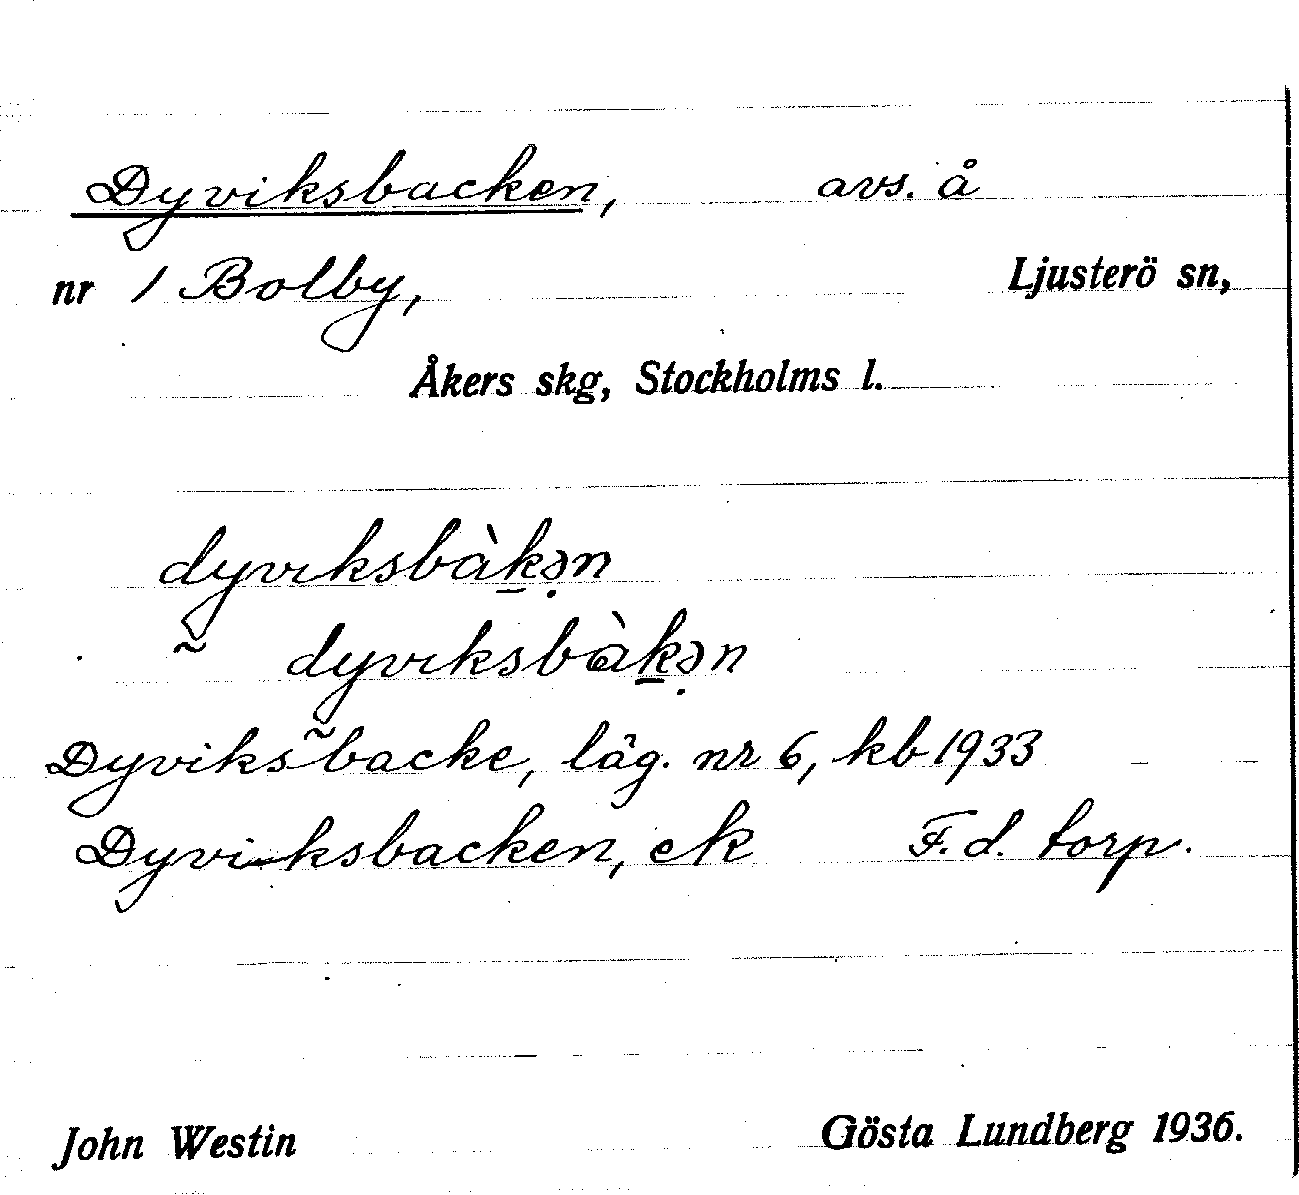 Dyviksbacken, avs. å
nr 1 Bolby, Ljusterö sn,
Åkers skg, Stockholms l.
dyvıksbàk̲ə̣n
~ dyvıksbàk̲ə̣n
Dyviks~backe, läg. nr 6, kb 1933
Dyviksbacken, ek F. d. torp.
John Westin Gösta Lundberg 1936.